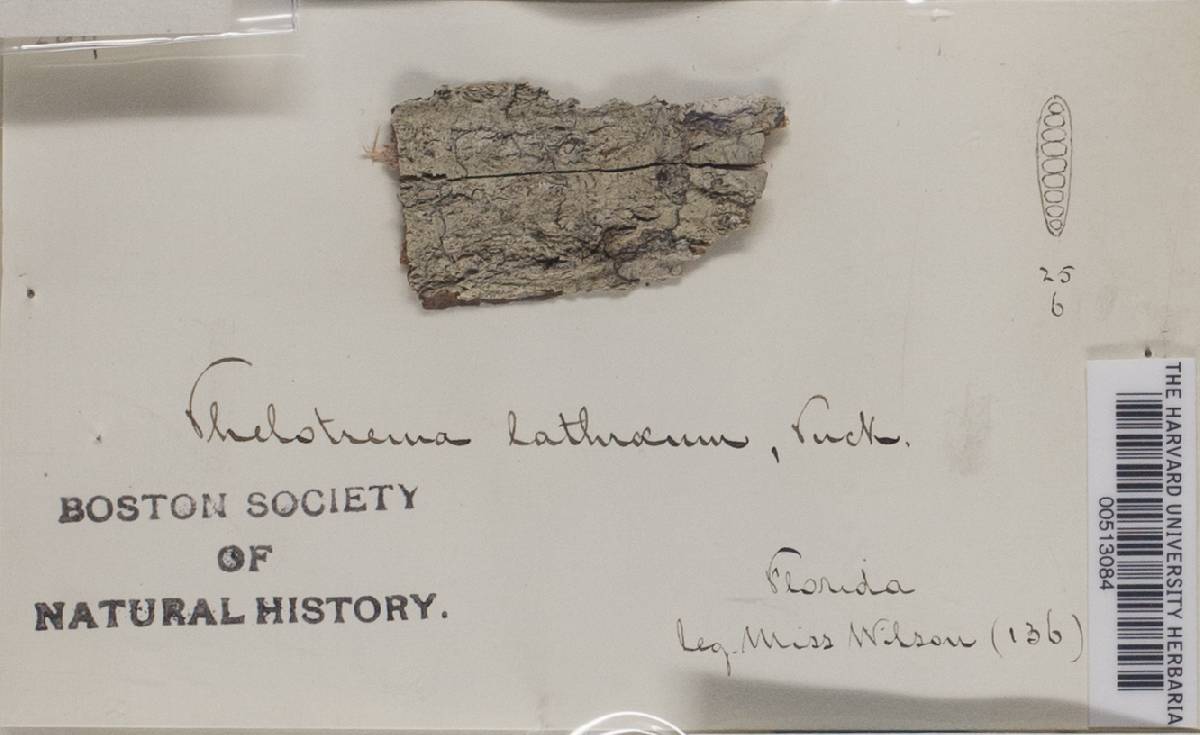 25
6
Thelotrema lathraeum, Tuck.
BOSTON SOCIETY
OF
NATURAL HISTORY.
Florida
leg. Miss Wilson (136)
THE HARVARD UNIVERSITY HERBARIA
00513084